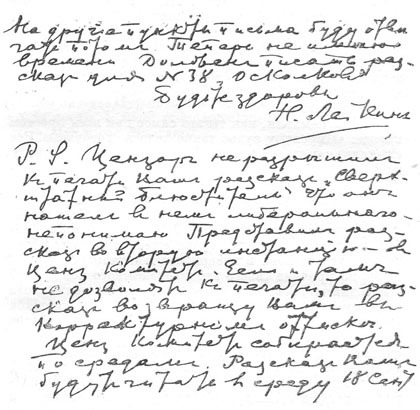 На другіе пункты письма буду отвѣ
чать потомъ. Теперь не имѣю
времени. Долженъ писать раз-
сказъ для № 38 „Осколковъ"
Будьте здоровы
Н. Лейкинъ
P. S. Цензоръ не разрѣшилъ
къ печати Вашъ разсказъ „Сверх-
штатный блюститель". Что онъ
нашелъ въ немъ либеральнаго -
не понимаю. Представилъ раз-
сказъ во вторую инстанцію - въ
Ценз. Комитетъ. Если и тамъ
не дозволятъ къ печати, то раз-
сказъ возвращу Вамъ въ
корректурномъ оттискѣ.
Ценз. Комитетъ собирается
по средамъ. Разсказъ Вашъ
будутъ читать въ среду 18 Сент